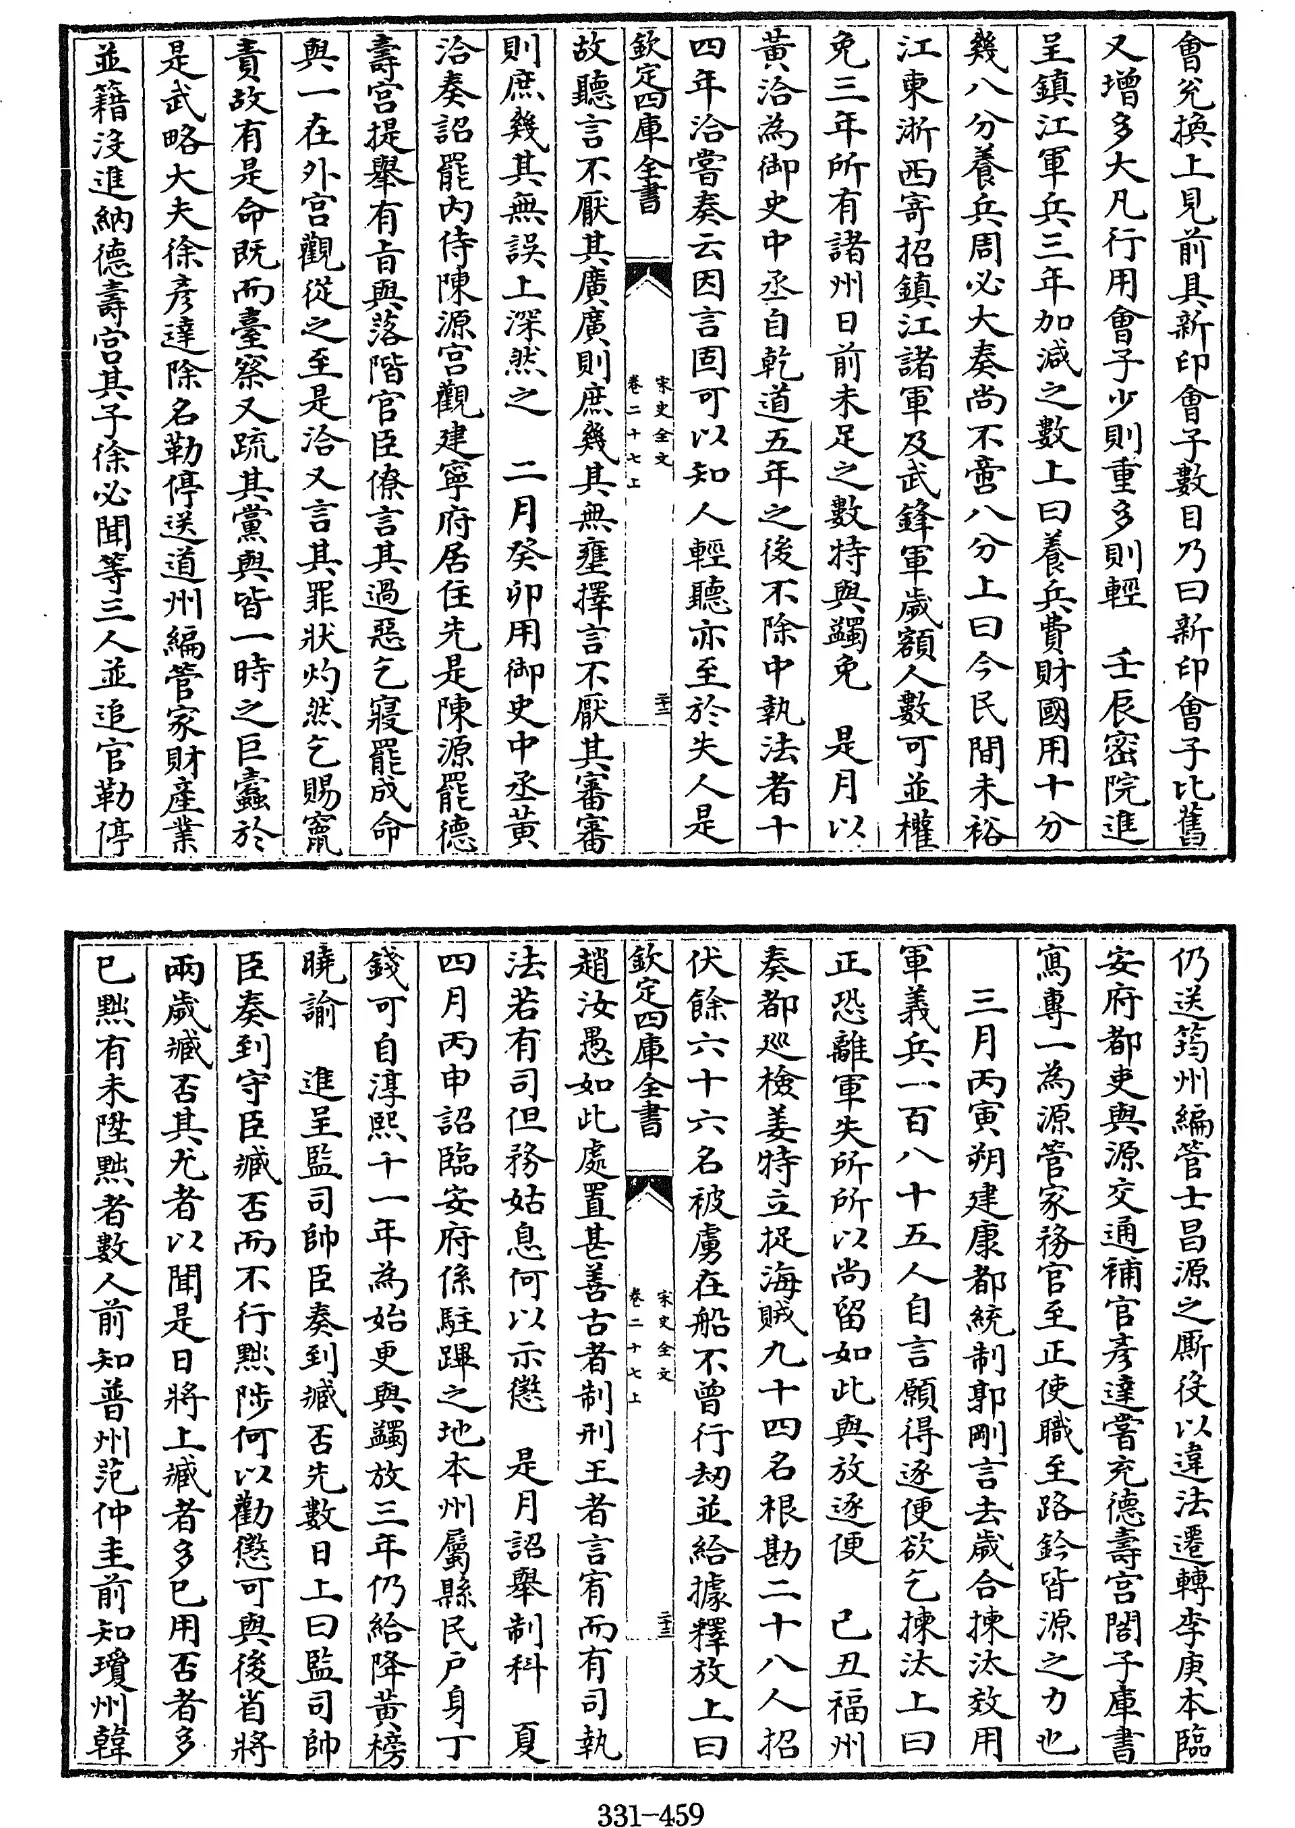 會兊換上見前具新印會子數目乃曰新印會子比舊
又增多大凡行用會子少則重多則輕　壬辰密院進
呈鎮江軍兵三年加減之數上曰養兵費財國用十分
幾八分養兵周必大奏尚不啻八分上曰今民間未裕
江東浙西寄招鎮江諸軍及武鋒軍歲額人數可並權
免三年所有諸州日前未足之數特與蠲免　是月以
黃洽為御史中丞自乾道五年之後不除中執法者十
四年洽嘗奏云因言固可以知人輕聽亦至於失人是
欽定四庫全書
宋史全文
卷二十七上
三十二
故聽言不厭其廣廣則庶幾其無壅擇言不厭其審審
則庶幾其無誤上深然之　二月癸卯用御史中丞黃
洽奏詔罷內侍陳源宮觀建寧府居住先是陳源罷德
壽宮提舉有旨與落階官臣僚言其過惡乞寢罷成命
與一在外宮觀從之至是洽又言其罪狀灼然乞賜竄
責故有是命既而臺察又疏其黨與皆一時之巨蠹於
是武略大夫徐彥達除名勒停送道州編管家財產業
並籍沒進納德壽宮其子徐必聞等三人並追官勒停
仍送筠州編管士昌源之厮役以違法遷轉李庚本臨
安府都吏與源交通補官彥達嘗充德壽宮閤子庫書
寫專一為源管家務官至正使職至路鈐皆源之力也
三月丙寅朔建康都統制郭剛言去歲合揀汰效用
軍義兵一百八十五人自言願得逐便欲乞揀汰上曰
正恐離軍失所所以尚留如此與放逐便　已丑福州
奏都巡檢姜特立捉海賊九十四名根勘二十八人招
伏餘六十六名被虜在船不曾行刼並給據釋放上曰
欽定四庫全書
宋史全文
卷二十七上
三十三
趙汝愚如此處置甚善古者制刑王者言宥而有司執
法若有司但務姑息何以示懲　是月詔舉制科　夏
四月丙申詔臨安府係駐蹕之地本州屬縣民戶身丁
錢可自淳熙十一年為始更與蠲放三年仍給降黃榜
曉諭　進呈監司帥臣奏到臧否先數日上曰監司帥
臣奏到守臣臧否而不行黜陟何以勸懲可與後省將
兩歲臧否其尤者以聞是日將上臧者多已用否者多
已黜有未陞黜者數人前知普州范仲圭前知瓊州韓
331-459